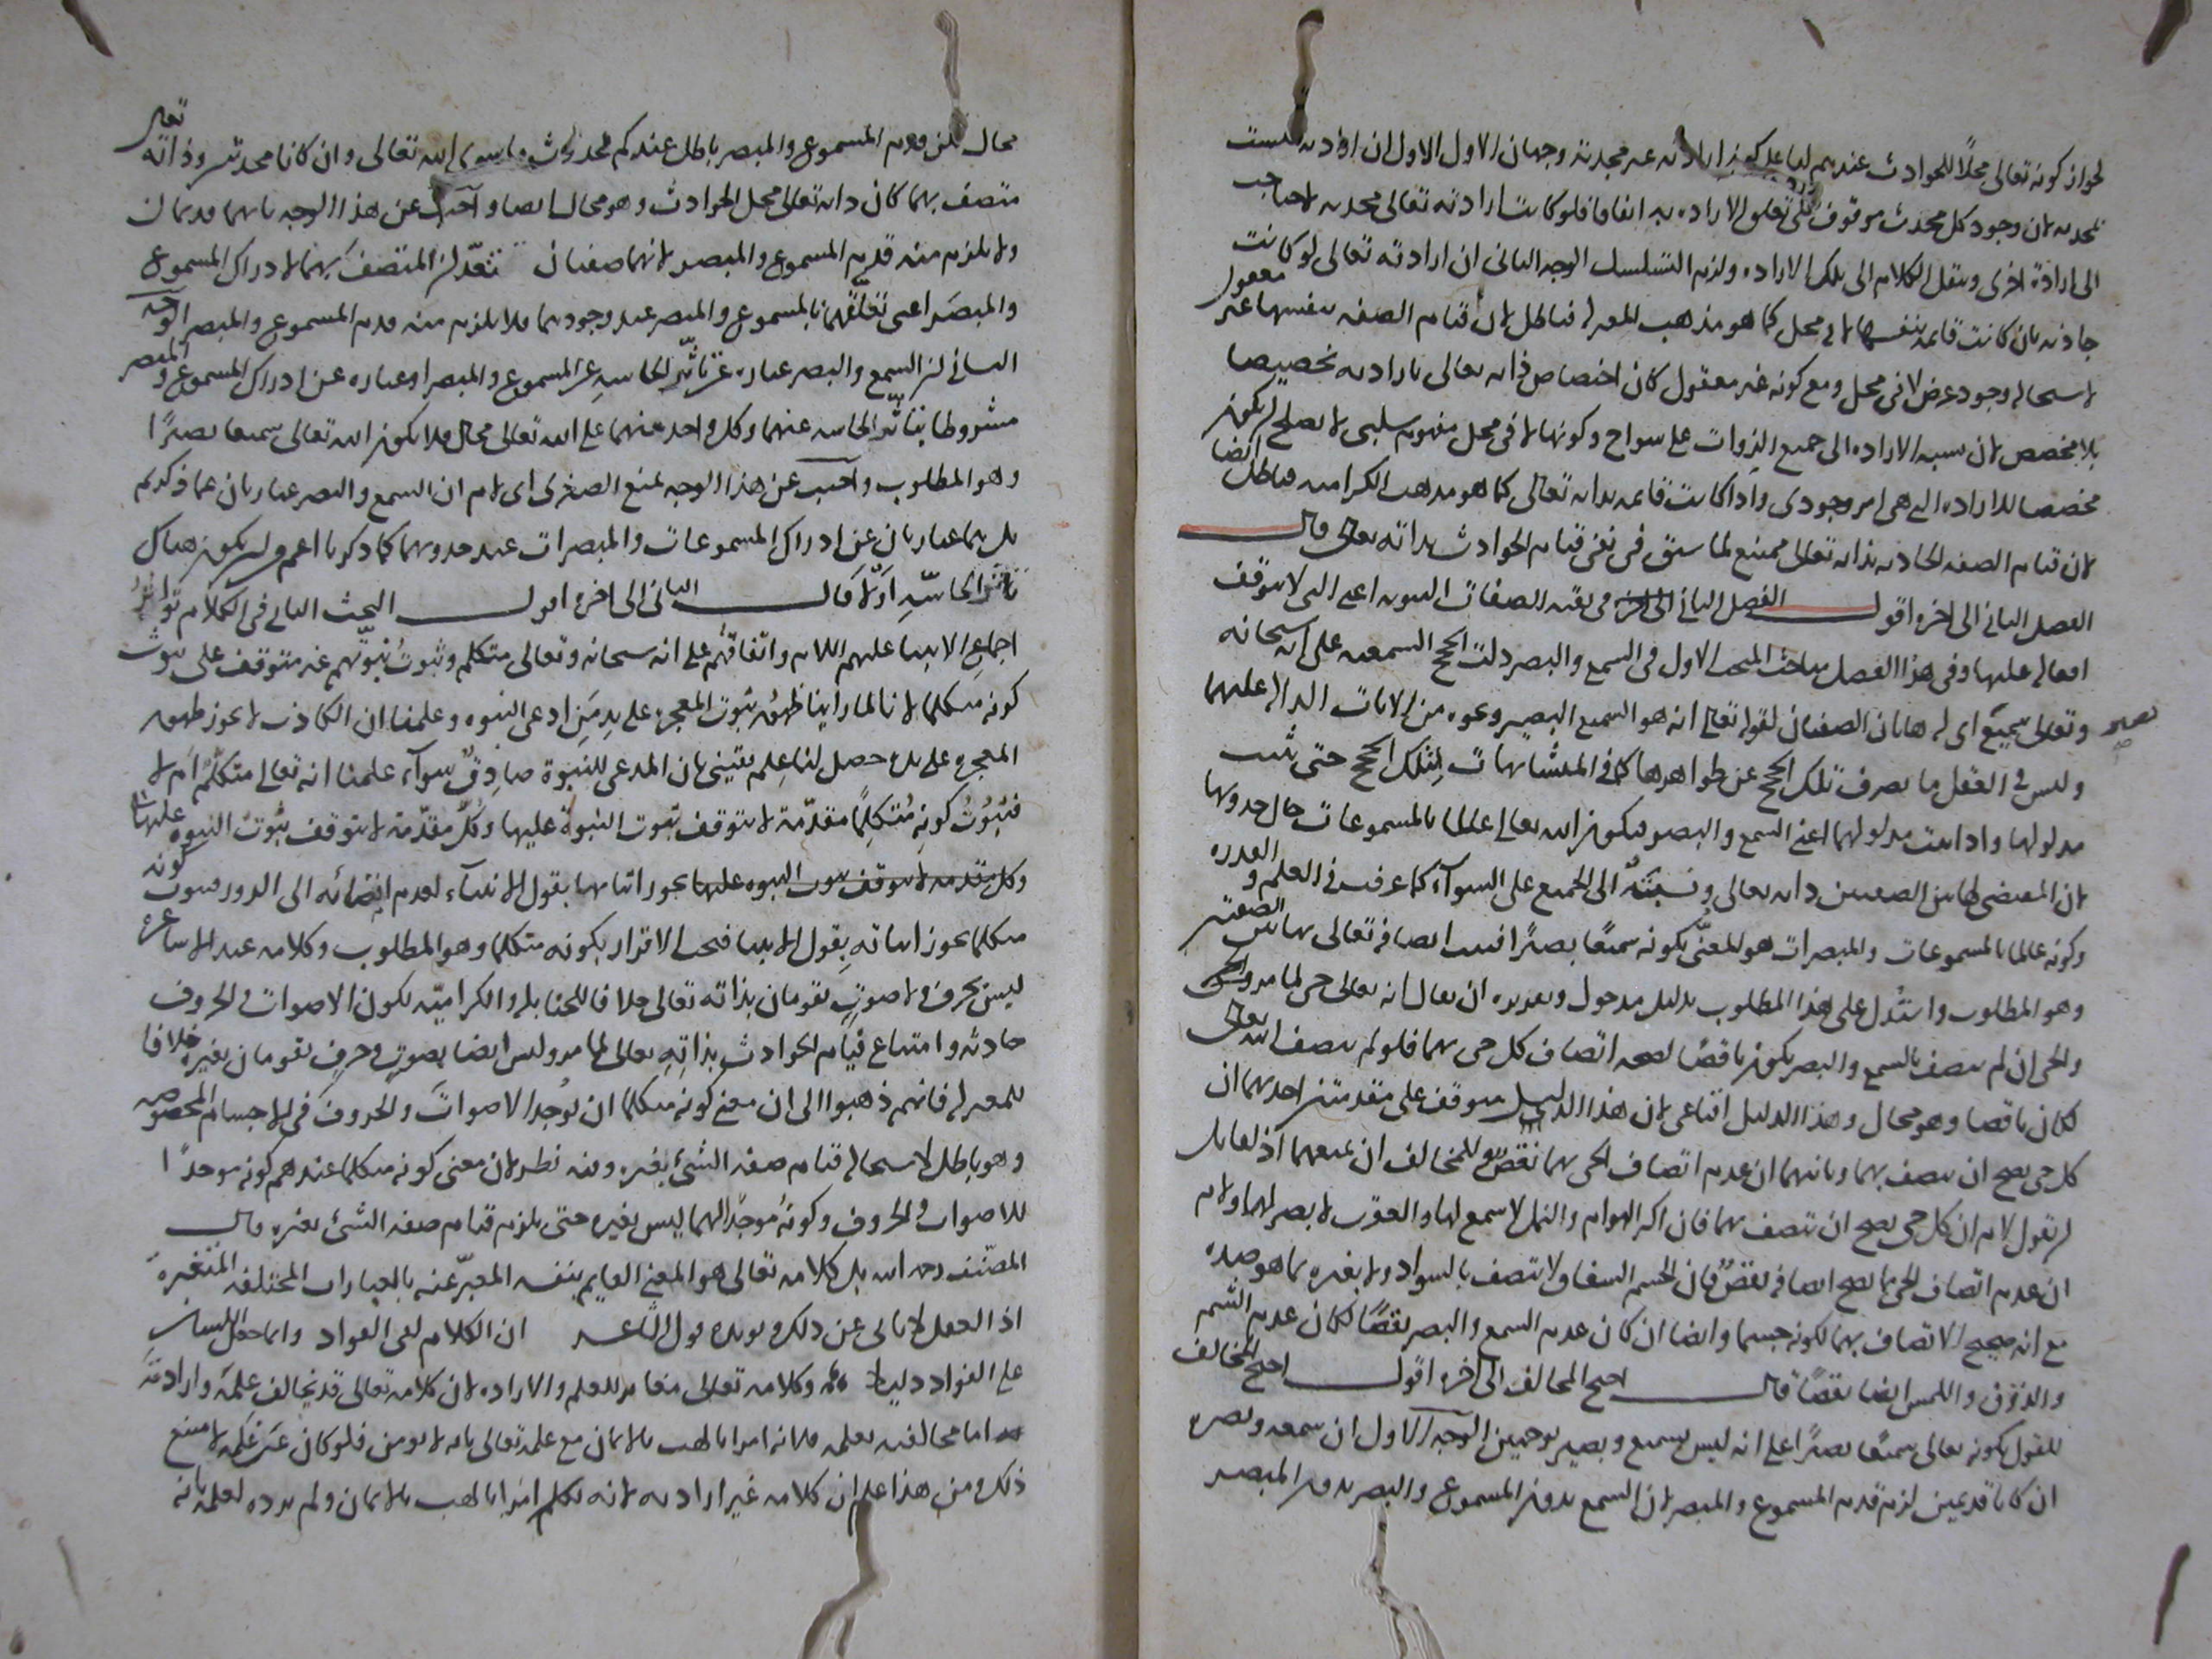 لجواز كونه تعالى محلًا للحوادث عندهم لنا على كون ارادته غير محدثة وجهان الاول ان ارادته ليست
محدثه لان وجود كل محدث موقوف على تعلق الاراده به اتفاقا فلو كانت ارادته تعالى محدثه لاحتاجت
الى ارادة اخرى وينقل الكلام الى تلك الاراده ولزم التسلسل الوجه الثانى ان ارادته تعالى لو كانت
حادثه فان كانت قائمة بنفسها لا فى محل كما هو مذهب المعتزلة فباطل لان قيام الصفه بنفسها غير معقول
لاستحالة وجود عرض لا فى محل ومع كونه غير معقول كان اختصاص ذاته تعالى بارادته تخصيصا
بلا مخصص لان نسبة الاراده الى جميع الذوات على سواء وكونها لا فى محل مفهوم سلبى لا يصلح ان يكون
مخصصا للاراده التى هى امر وجودى واذا كانت قائمه بذاته تعالى كما هو مذهب الكراميه فباطل ايضا
لان قيام الصفه الحادثه بذاته تعالى ممتنع لما سبق فى نفى قيام الحوادث بذاته تعالى قال
الفصل الثانى الى اخره اقول الفصل الثانى فى بقية الصفات الثبوتيه اعنى التى لا يتوقف
افعاله عليها وفى هذا الفصل مباحث المبحث الاول فى السمع والبصر دلت الحجج السمعيه على انه سبحانه
وتعالى سميع بصير اى له هاتان الصفتان لقوله تعالى انه هو السميع البصير ونحوه من الايات الدالة عليهما
وليس فى العقل ما يصرف تلك الحجج عن ظواهرها كما فى المتشابهات لتلك الحجج حتى يثبت
مدلولها واذا ثبت مدلولهما اعنى السمع والبصر فيكون الله تعالى عالما بالمسموعات حال حدوثها
لان المقتضى لهاتين الصفتين ذاته تعالى ونسبته الى الجميع على السواء كما عرفت فى العلم والقدره
وكونه عالما بالمسموعات والمبصرات هو المعنى بكونه سميعًا بصيرًا فثبت اتصافه تعالى بهاتين الصفتين
وهو المطلوب واستدل على هذا المطلوب بدليل مدخول وتقريره ان يقال انه تعالى حى لما مر وكل
والحى ان لم يتصف بالسمع والبصر يكون ناقصًا لصحة اتصاف كل حى بهما فلو لم يتصف الله تعالى
لكان ناقصا وهو محال وهذا الدليل اقناعى لان هذا الدليل يتوقف على مقدمتين احدهما ان
كل حى يصح ان يتصف بهما وثانيهما ان عدم اتصاف الحى بهما نقص وللمخالف ان يمنعهما اذ لقائل
ان يقول لا نم ان كل حى يصح ان يتصف بهما فان اكثر الهوام والنمل لا سمع لها والعقرب لا بصر لها ولا نم
ان عدم اتصاف الحى بما يصح اتصافه نقص فان الجسم الشفاف لا يتصف بالسواد ولا بغيره مما هو ضده
مع انه صحيح الاتصاف بهما لكونه جسما وايضا ان كان عدم السمع والبصر نقصًا لكان عدم الشم
والذوق واللمس ايضا نقصًا قال احتج المخالف الى اخره اقول احتج المخالف
للقول بكونه تعالى سميعًا بصيرًا على انه ليس بسميع وبصير بوجهين الوجه الاول ان سمعه وبصره
ان كانا قديمين لزم قدم المسموع والمبصر لان السمع بدون المسموع والبصر بدون المبصر
محال لكن قدم المسموع والمبصر باطل عندكم لحدوث ما سوى الله تعالى وان كانا محدثين وذاته تعالى
متصف بهما كان ذاته تعالى محل الحوادث وهو محال ايضا واجيب عن هذا الوجه بانهما قديمان
ولا يلزم منه قدم المسموع والمبصر لانهما صفتان تعد المتصف بهما لادراك المسموع
والمبصر اعنى تعلقهما بالمسموع والمبصر عند وجودهما فلا يلزم منه قدم المسموع والمبصر الوجه
الثانى ان السمع والبصر عباره عن تاثر الحاسه عن المسموع والمبصر او عباره عن ادراك المسموع والمبصر
مشروطا بتاثر الحاسه عنهما وكل واحد منهما على الله تعالى محال فلا يكون الله تعالى سميعا بصيرًا
وهو المطلوب واجيب عن هذا الوجه بمنع الصغرى اى لا نم ان السمع والبصر عبارتان عما ذكرتم
بل هما عبارتان عن ادراك المسموعات والمبصرات عند حدوثهما كما ذكرنا اعم من ان يكون هناك
تاثر الحاسه او لا قال الثانى الى اخره اقول البحث الثانى فى الكلام تواتر
اجماع الانبيا عليهم السلام واتفاقهم على انه سبحانه وتعالى متكلم وثبوت نبوتهم غير متوقف على ثبوت
كونه متكلما لانا لما راينا ظهور ثبوت المعجزة على يد من ادعى النبوه وعلمنا ان الكاذب لا يجوز ظهور
المعجزه على يده حصل لنا علم يقينى بان المدعى للنبوة صادق سواء علمنا انه تعالى متكلم ام لا
فثبوت كونه متكلما مقدمة لا يتوقف ثبوت النبوة عليها وكل مقدمة لا يتوقف ثبوت النبوه عليها
وكل مقدمه لا يتوقف ثبوت النبوه عليها يجوز اثباتها بقول الانبياء لعدم افضائه الى الدور فثبوت كونه
متكلما يجوز اثباته بقول الانبيا فيجب الاقرار بكونه متكلما وهو المطلوب وكلامه عند الاشاعرة
ليس بحرف ولا صوت يقومان بذاته تعالى خلافا للحنابله والكرامية لكون الاصوات والحروف
حادثه وامتناع قيام الحوادث بذاته تعالى لما مر وليس ايضا بصوت وحرف يقومان بغيره خلافا
للمعتزله فانهم ذهبوا الى ان معنى كونه متكلما ان يوجد الاصوات والحروف فى الاجسام المخصوصه
وهو باطل لاستحالة قيام صفة الشئ بغيره وفيه نظر لان معنى كونه متكلما عندهم كونه موجدًا
للاصوات والحروف وكونه موجدًا لهما ليس بغيره حتى يلزم قيام صفة الشئ بغيره قال
المصنف رحمه الله بل كلامه تعالى هو المعنى القايم بنفسه المعبر عنه بالعبارات المختلفة المتغيرة
اذ العقل لا يابى عن ذلك ويؤيده قول الشاعر ان الكلام لفى الفواد وانما جعل اللسان
على الفواد دليلا وكلامه تعالى مغاير للعلم والاراده لان كلامه تعالى قد يخالف علمه وارادته
اما مخالفته لعلمه فلانه امر ابا لهب بالايمان مع علمه تعالى بانه لا يومن فلو كان عين علمه لامتنع
ذلك ومن هذا علم ان كلامه غير ارادته لانه تكلم امر ابا لهب بالايمان ولم يرده لعلمه بانه